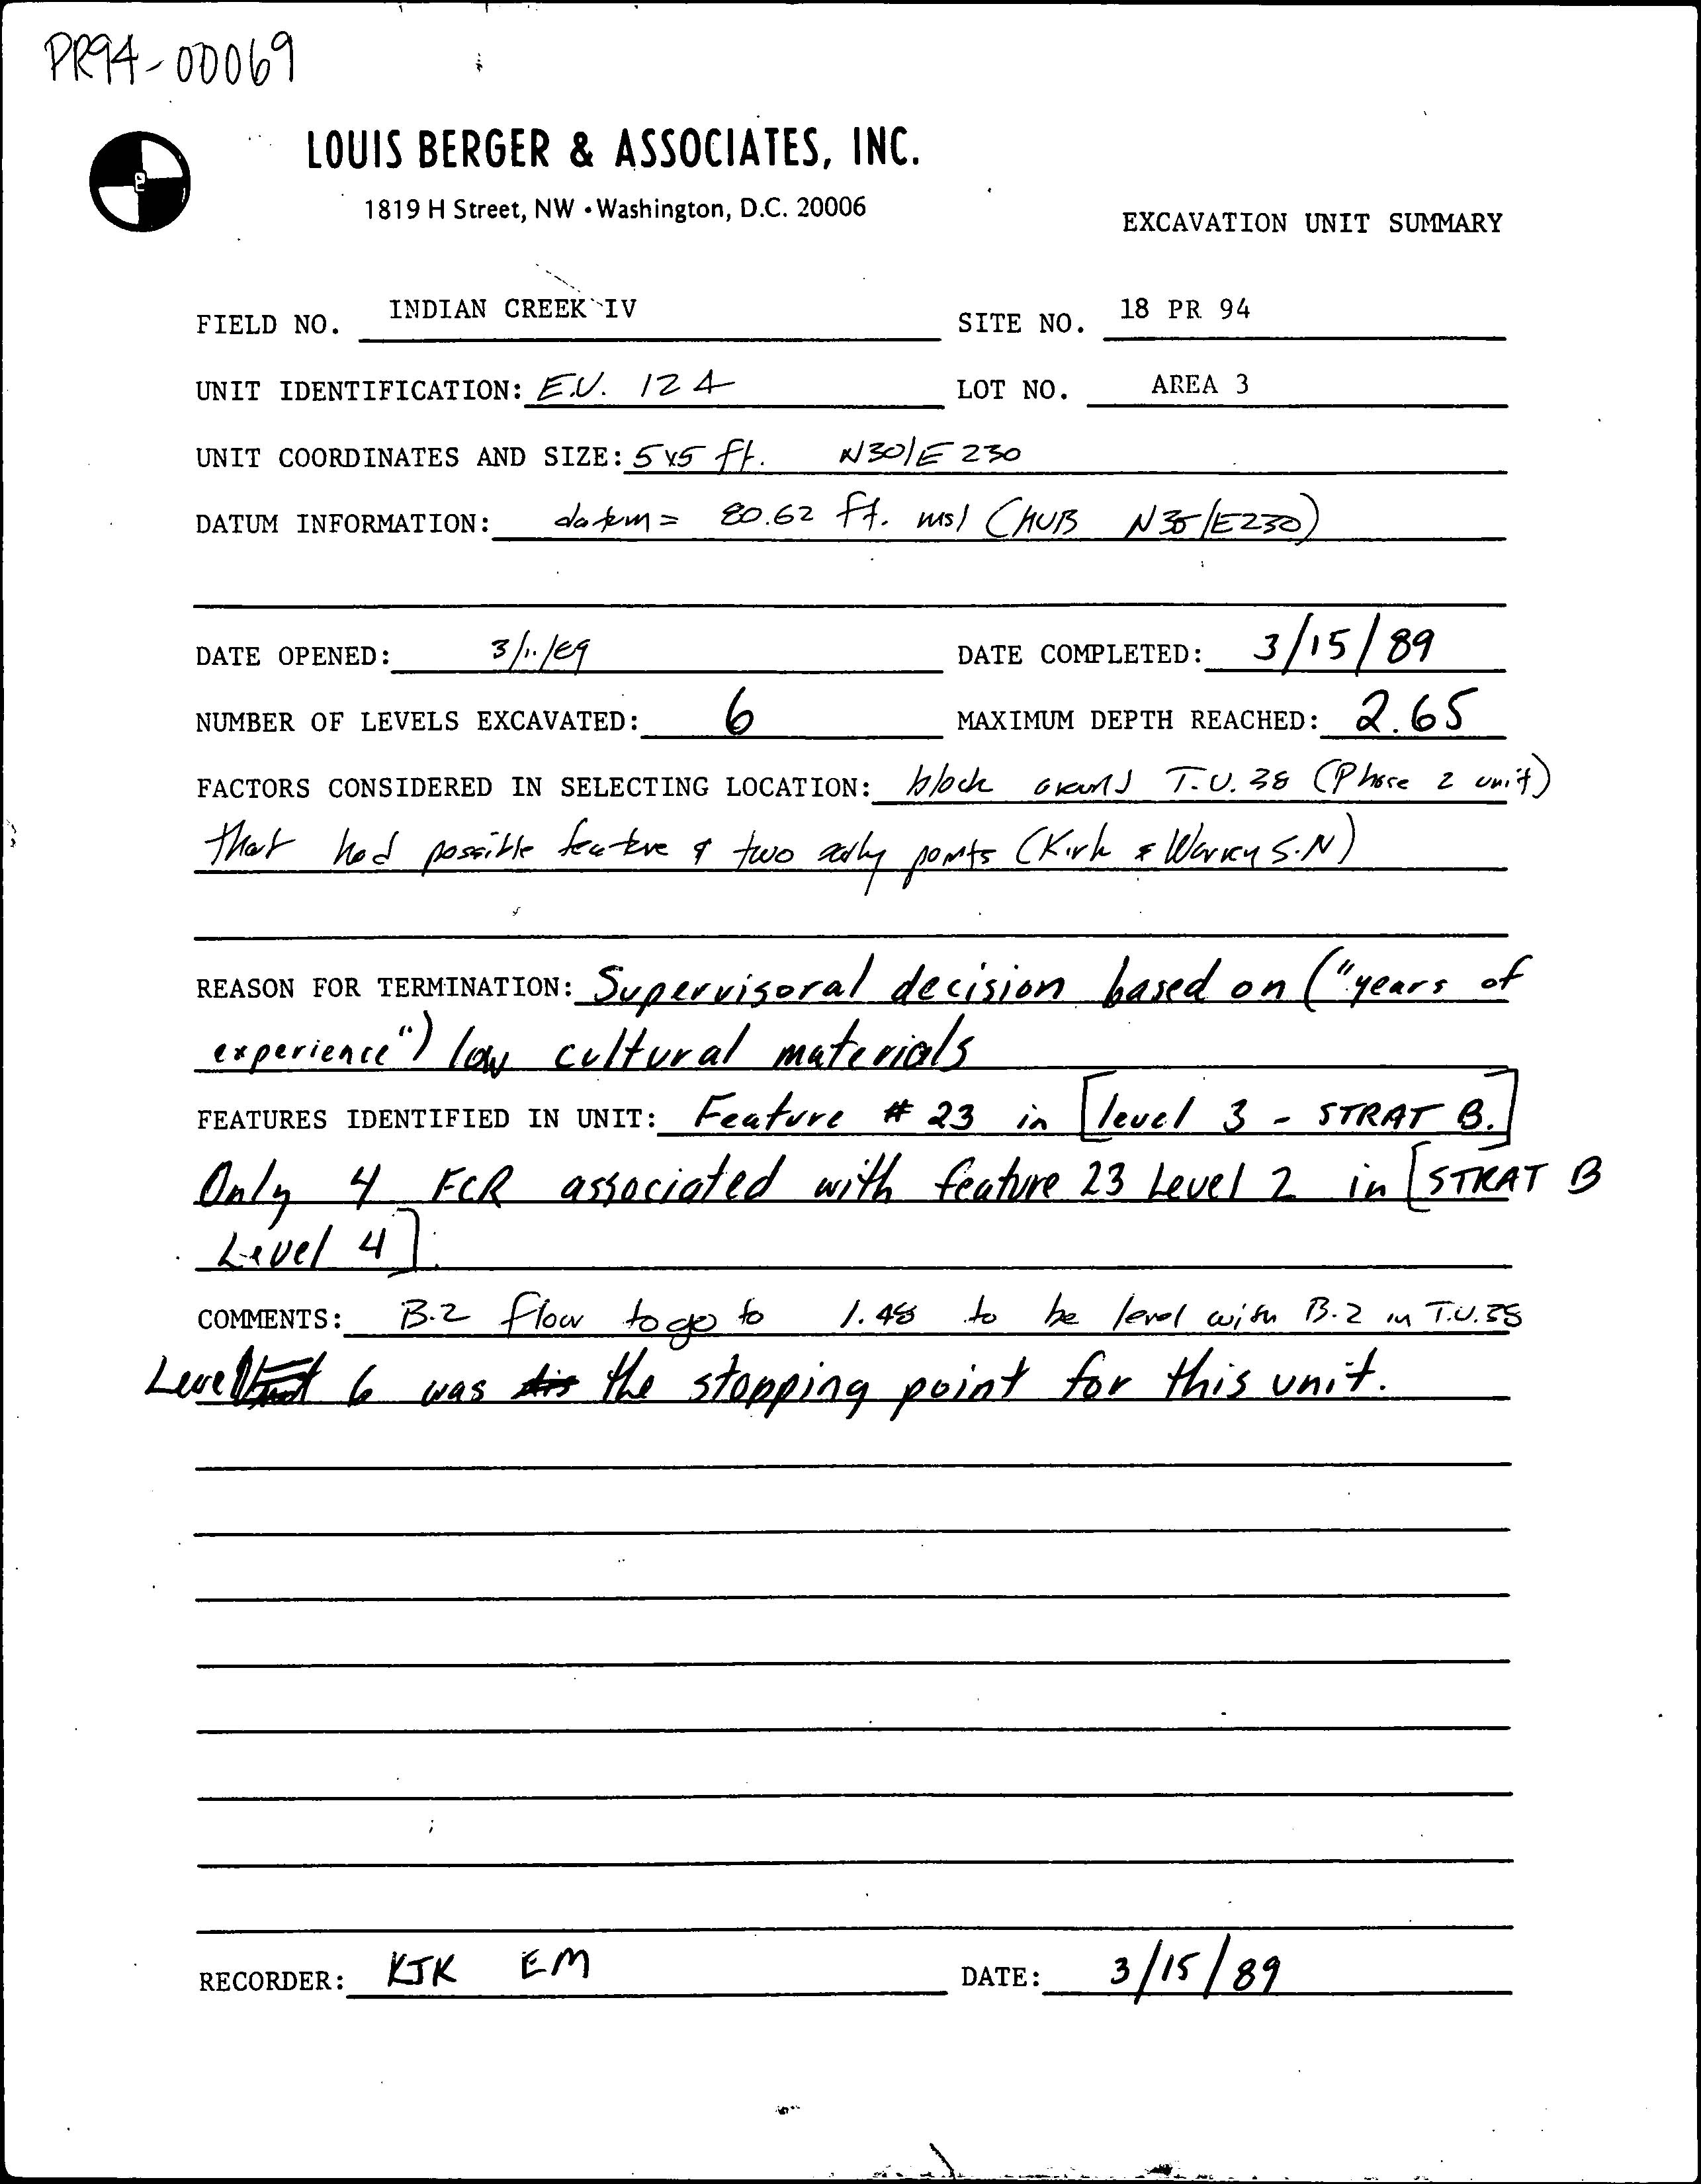 PR94-00069
LOUIS BERGER & ASSOCIATES, INC.
1819 H Street, NW • Washington, D.C. 20006
EXCAVATION UNIT SUMMARY
FIELD NO. INDIAN CREEK IV SITE NO. 18 PR 94
UNIT IDENTIFICATION: E.U. 124 LOT NO. AREA 3
UNIT COORDINATES AND SIZE: 5x5 ft. N30/E 230
DATUM INFORMATION: datum = 80.62 ft. msl (HUB /E230)
DATE OPENED: DATE COMPLETED: 3/15/89
NUMBER OF LEVELS EXCAVATED: 6 MAXIMUM DEPTH REACHED: 2.65
FACTORS CONSIDERED IN SELECTING LOCATION: block around T.U. 38 (Phase 2 unit)
that had possible feature & two early points (Kirk & S.N)
REASON FOR TERMINATION: Supervisoral decision based on ("years of
experience") low cultural materials
FEATURES IDENTIFIED IN UNIT: Feature # 23 in [level 3 - STRAT B.]
Only 4 FCR associated with feature 23 Level 2 in [STRAT B
Level 4].
COMMENTS: B-2 floor to go to 1.48 to be level with B-2 in T.U.38
Level 6 was the stopping point for this unit.
RECORDER: KJK EM DATE: 3/15/89